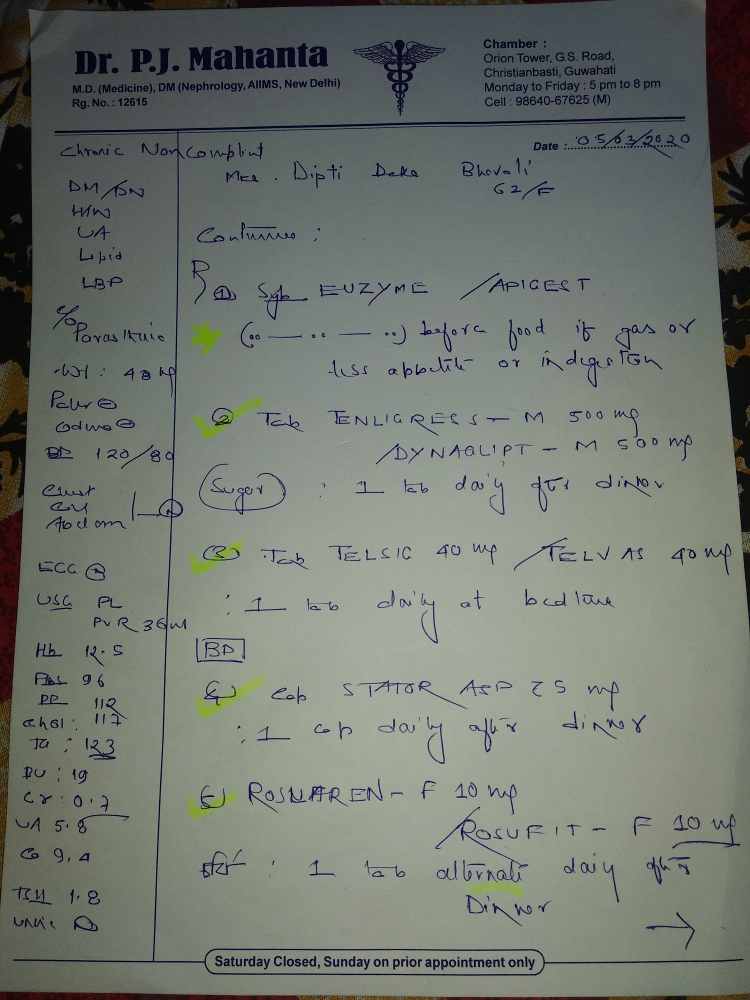 Dr. P.J. Mahanta
M.D. (Medicine), DM (Nephrology, AIIMS, New Delhi)
Rg. No. : 12615
Chamber :
Orion Tower, G.S. Road,
Christianbasti, Guwahati
Monday to Friday : 5 pm to 8 pm
Cell : 98640-67625 (M)
Date : 05/03/2020
Chronic Non Complint
Mrs. Dipti Deka
62/F
DM/DN
UA
Lipid
LBP
c/o
Wt : 48 kg
BP 120/80
Chest
Abdom
ECG
USG PL
PVR 36 ml
Hb 12.5
Fbs 96
PP 112
Chol : 117
TG : 123
BU : 19
Cr : 0.7
UA 5.8
Ca 9.4
TSH 1.8
Continue :
R
① Syp EUZYME / APIGEST
(.. — .. — ..) before food if gas or
less appetite or indigestion
② Tab TENLIGRESS - M 500 mg
/ DYNAGLIPT - M 500 mg
(Sugar) : 1 tab daily after dinner
③ Tab TELSIG 40 mg / TELVAS 40 mg
: 1 tab daily at bedtime
BP
④ Cap STATOR ASP 75 mg
: 1 cap daily after dinner
⑤ ROSUAREN - F 10 mg
/ ROSUFIT - F 10 mg
: 1 tab alternate daily after
Dinner
→
Saturday Closed, Sunday on prior appointment only